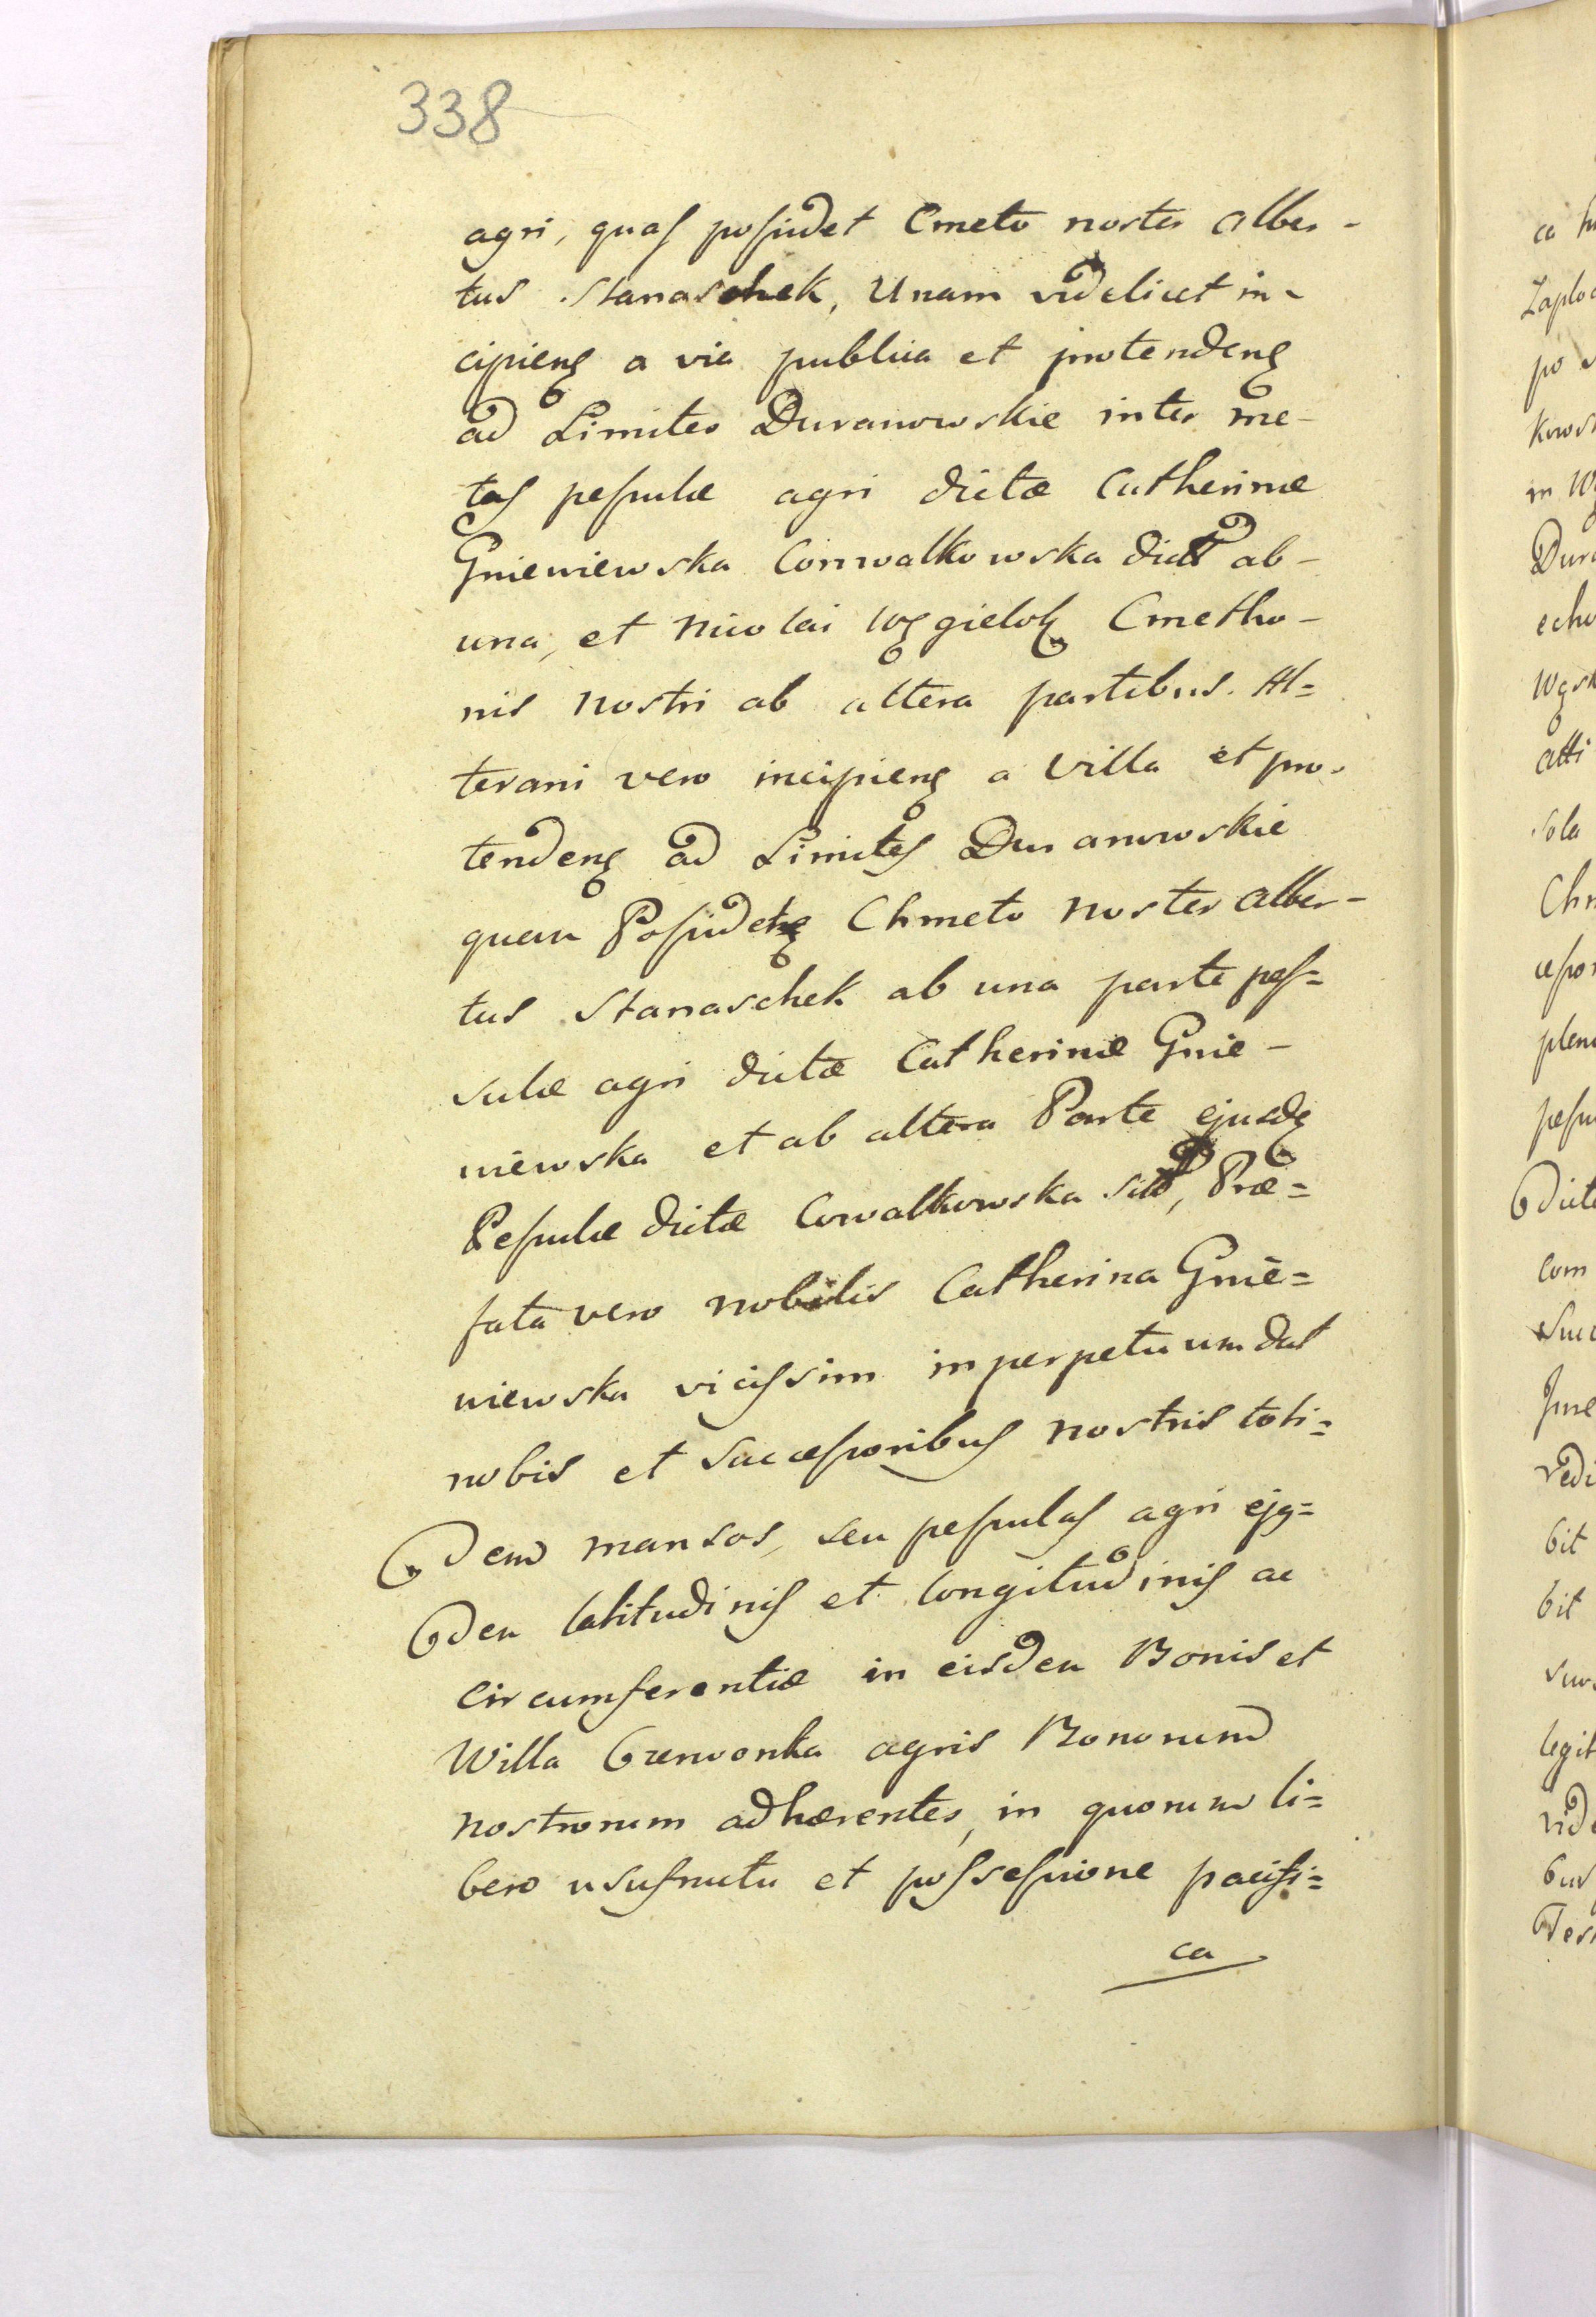 338
agri, quas possidet Cmeto noster Alber-
tus Stanaschek, Unam videlicet in-
cipieng a via publica et protendeng
ad Limites Duranowskie inter me-
tas pessulæ agri dictæ Catherinæ
Gnieniewska Conwalkowska dict ab-
una, et Nicolai Węgielek Cmetho-
nis nostri ab altera partibus. Al=
teram vero incipieng a Villa et pro-
tendeng ad Limites Duranowskie
quam Possidet Chmeto noster Alber-
tus Stanaschek ab una parte pes=
sulæ agri dictæ Catherinæ Gnie-
niewska et ab altera Parte ejusdę
Pessulæ dictæ Cowalkowska sit, Præ=
fata vero nobilis Catherina Gnie=
niewska vicissim in perpetuum dat
nobis et Successoribus nostris toti=
dem mansos, seu pessulas agri ejq=
dem latitudinis et longitudinis ac
circumferentiæ in eisdem Bonis et
Willa Czerwonka agris Bonorum
nostrorum adhærentes, in quorum li=
bero usufructu et possessione pacifi=
ca